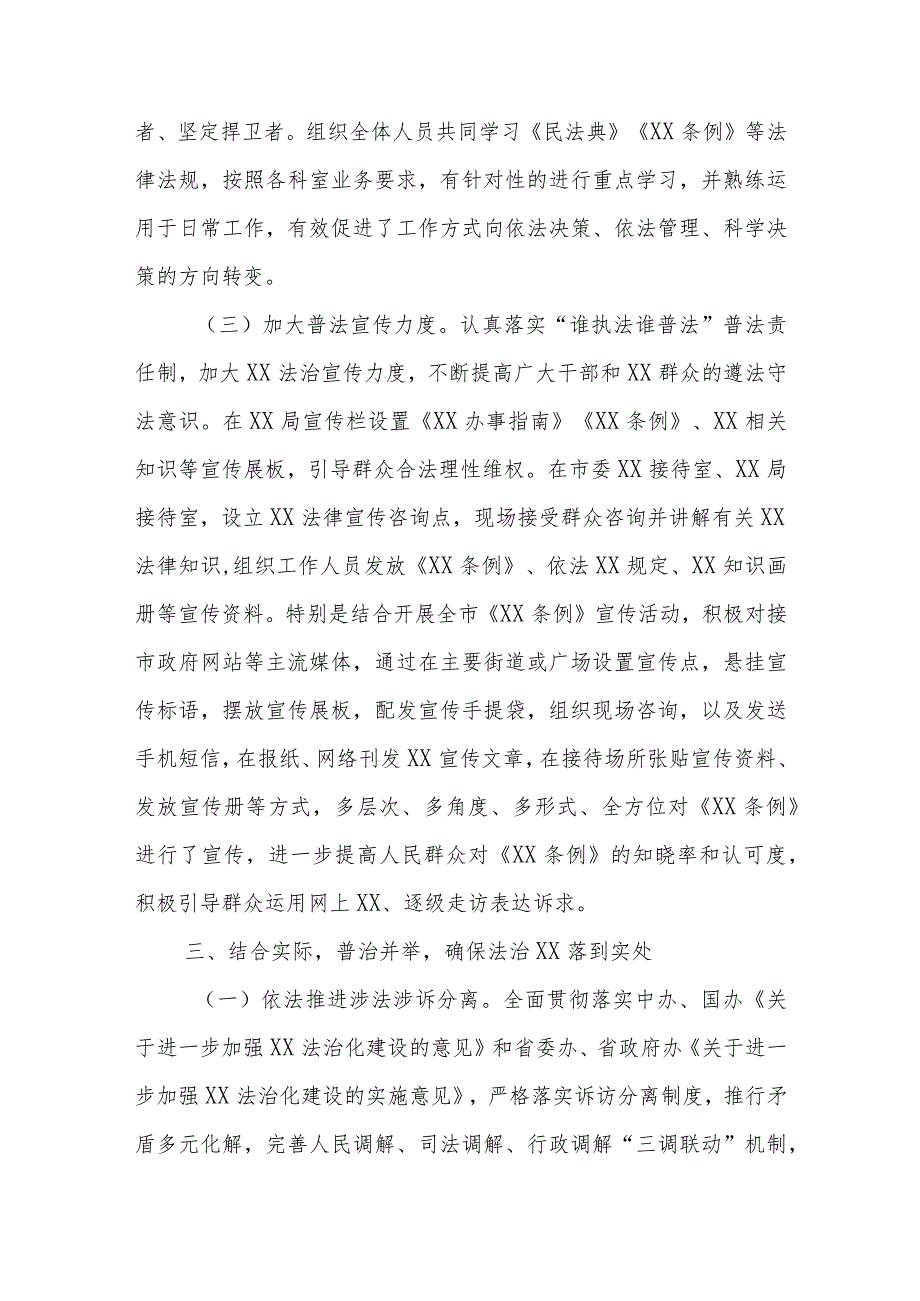 者、坚定捍卫者。组织全体人员共同学习《民法典》《XX 条例》等法
律法规，按照各科室业务要求，有针对性的进行重点学习，并熟练运
用于日常工作，有效促进了工作方式向依法决策、依法管理、科学决
策的方向转变。
（三）加大普法宣传力度。认真落实“谁执法谁普法”普法责
任制，加大 XX 法治宣传力度，不断提高广大干部和 XX 群众的遵法守
法意识。在 XX 局宣传栏设置《XX 办事指南》《XX 条例》、XX 相关
知识等宣传展板，引导群众合法理性维权。在市委 XX 接待室、XX 局
接待室，设立 XX 法律宣传咨询点，现场接受群众咨询并讲解有关 XX
法律知识,组织工作人员发放《XX 条例》、依法 XX 规定、XX 知识画
册等宣传资料。特别是结合开展全市《XX 条例》宣传活动，积极对接
市政府网站等主流媒体，通过在主要街道或广场设置宣传点，悬挂宣
传标语，摆放宣传展板，配发宣传手提袋，组织现场咨询，以及发送
手机短信，在报纸、网络刊发 XX 宣传文章，在接待场所张贴宣传资料、
发放宣传册等方式，多层次、多角度、多形式、全方位对《XX 条例》
进行了宣传，进一步提高人民群众对《XX 条例》的知晓率和认可度，
积极引导群众运用网上 XX、逐级走访表达诉求。
三、结合实际，普治并举，确保法治 XX 落到实处
（一）依法推进涉法涉诉分离。全面贯彻落实中办、国办《关
于进一步加强 XX 法治化建设的意见》和省委办、省政府办《关于进一
步加强 XX 法治化建设的实施意见》，严格落实诉访分离制度，推行矛
盾多元化解，完善人民调解、司法调解、行政调解“三调联动”机制，